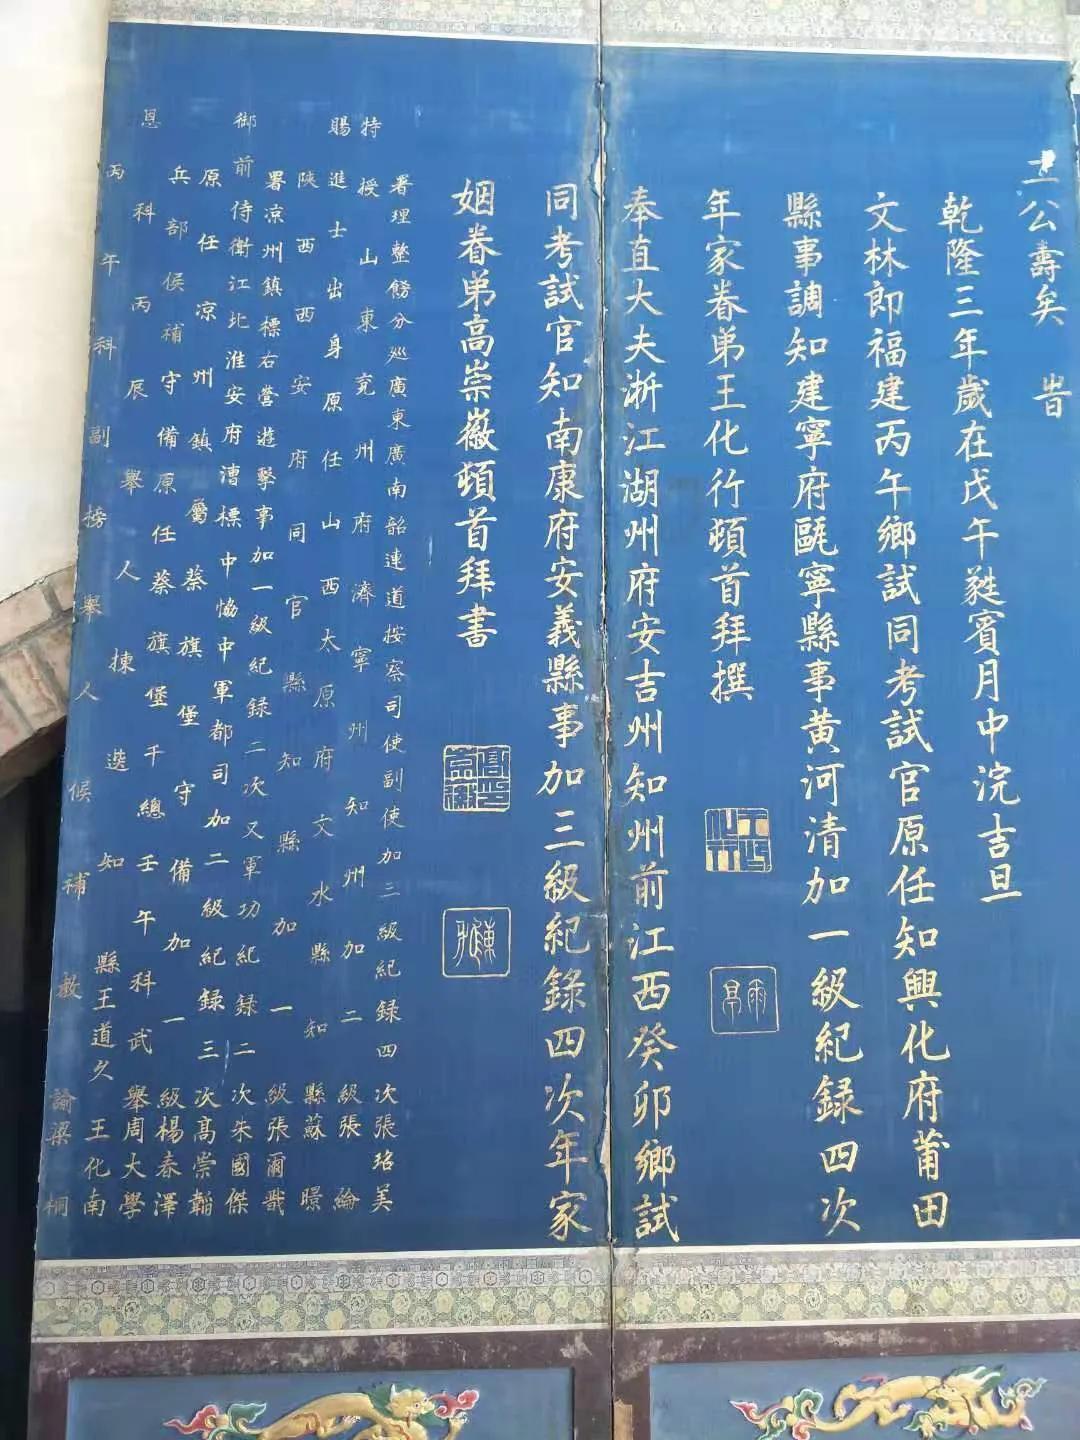 三公壽矣 旹
乾隆三年歲在戊午蕤賓月中浣吉旦
文林郎福建丙午鄉試同考試官原任知興化府莆田
縣事調知建寧府甌寧縣事黄河清加一級紀録四次
年家眷弟王化行頓首拜撰
奉直大夫浙江湖州府安吉州知州前江西癸卯鄉試
同考試官知南康府安義縣事加三級紀錄四次年家
姻眷弟高崇徽頓首拜書
署理整飭分廵廣東廣南韶連道按察司使副使加三級紀録四次張珆美
特授山東兖州府濟寧州知州加二級張綸
賜進士出身原任山西太原府文水縣知縣蘇暻
陝西西安府同官縣知縣加一級張爾戩
署凉州鎮標右營遊擊事加一級紀録二次又軍功紀録二次朱國傑
御前侍衛江北淮安府漕標中協中軍都司加二級紀録三次髙崇韜
原任凉州鎮屬蔡旗堡守備加一級楊春澤
兵部候補守備原任蔡旗堡千總壬午科武舉周大學
恩科丙辰舉人揀選知縣王道久
丙午科副榜舉人候補教諭梁桐
王化南